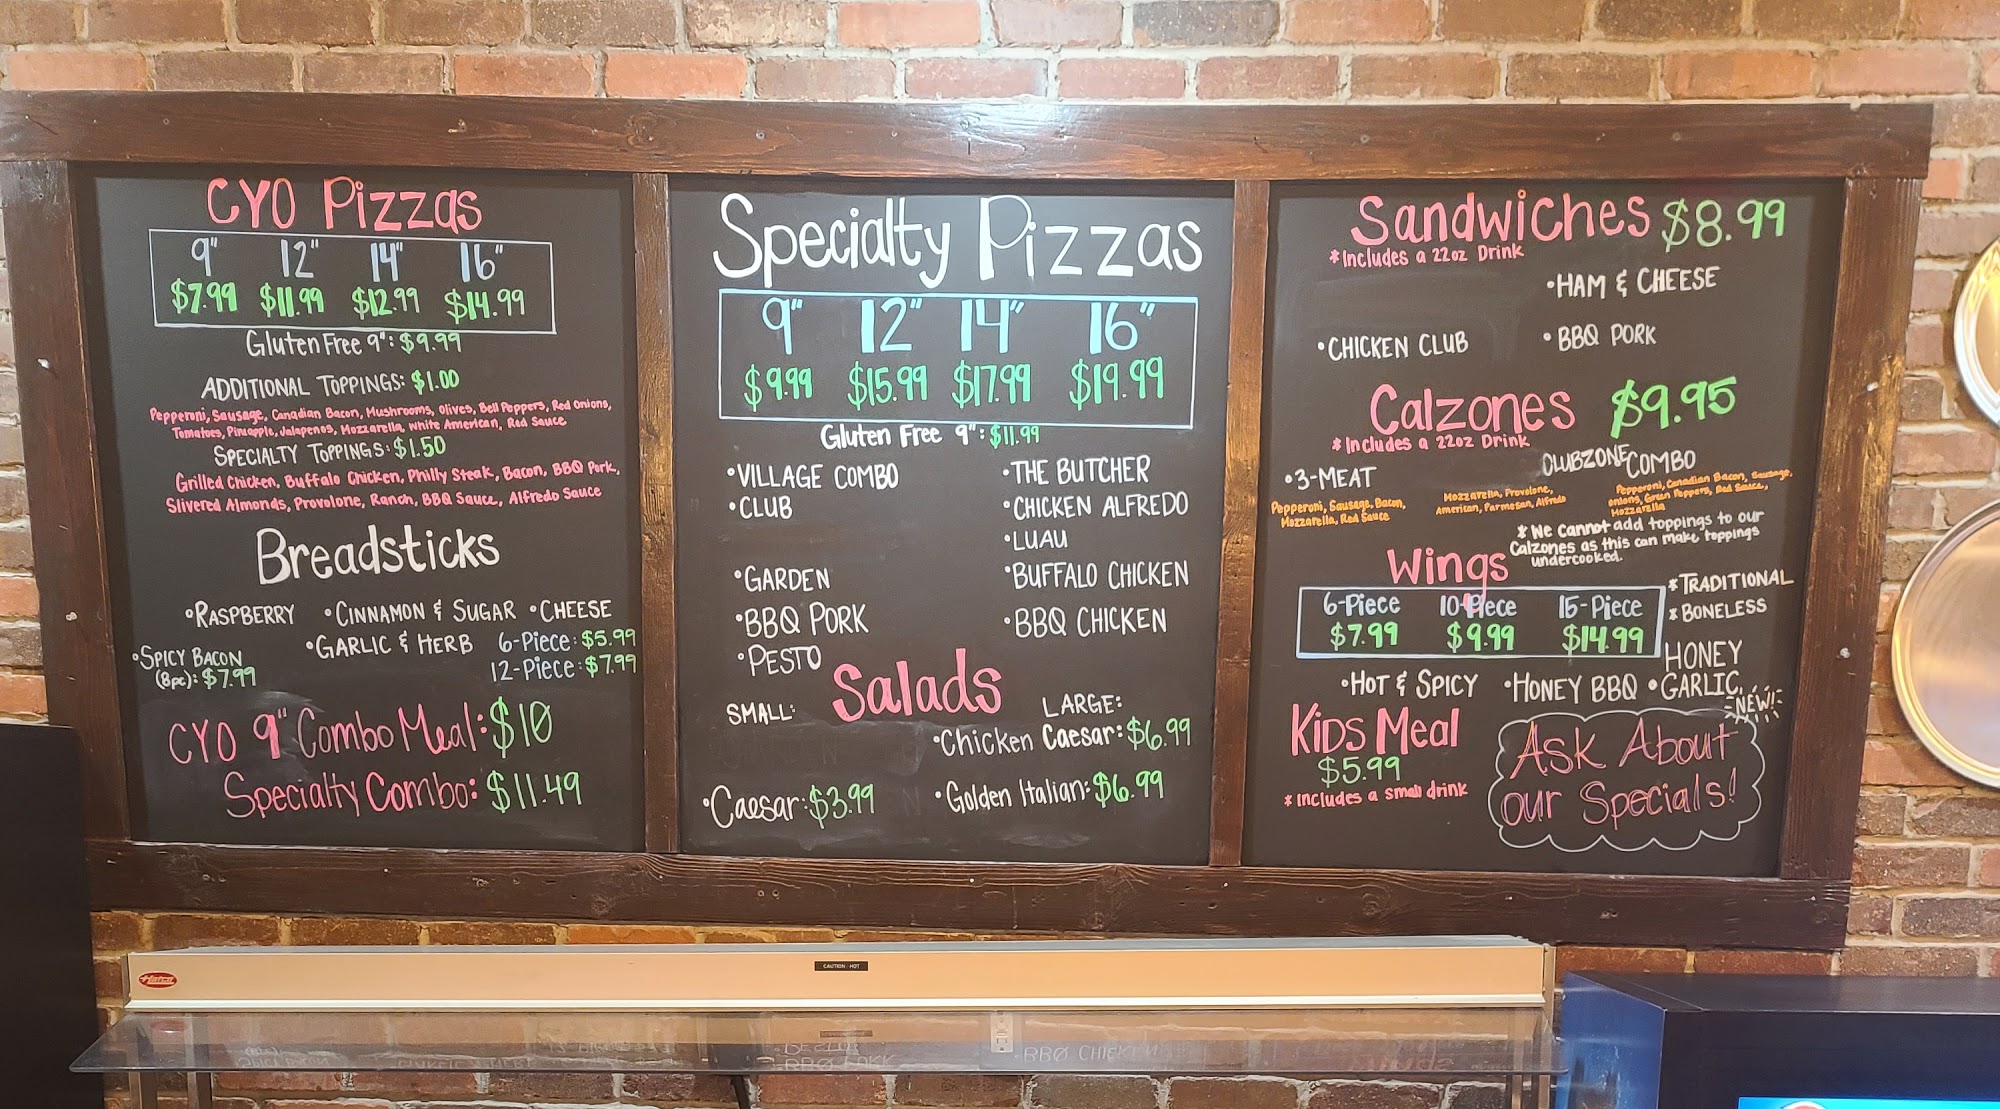 CYO Pizzas
9" 12" 14" 16"
$7.99 $11.99 $12.99 $14.99
Gluten Free 9": $9.99
ADDITIONAL TOPPINGS: $1.00
Pepperoni, Sausage, Canadian Bacon, Mushrooms, Olives, Bell Peppers, Red Onions,
Tomatoes, Pineapple, Jalapenos, Mozzarella, White American, Red Sauce
SPECIALTY TOPPINGS: $1.50
Grilled Chicken, Buffalo Chicken, Philly Steak, Bacon, BBQ Pork,
Slivered Almonds, Provolone, Ranch, BBQ Sauce, Alfredo Sauce
Breadsticks
•RASPBERRY •CINNAMON & SUGAR •CHEESE
•GARLIC & HERB 6-Piece: $5.99
12-Piece: $7.99
•SPICY BACON
(8pc): $7.99
CYO 9" Combo Meal: $10
Specialty Combo: $11.49
Specialty Pizzas
9" 12" 14" 16"
$9.99 $15.99 $17.99 $19.99
Gluten Free 9": $11.99
•VILLAGE COMBO •THE BUTCHER
•CLUB •CHICKEN ALFREDO
•LUAU
•GARDEN •BUFFALO CHICKEN
•BBQ PORK •BBQ CHICKEN
•PESTO
Salads
SMALL: LARGE:
•Chicken Caesar: $6.99
•Caesar: $3.99 •Golden Italian: $6.99
Sandwiches $8.99
*Includes a 22oz Drink
•HAM & CHEESE
•CHICKEN CLUB •BBQ PORK
Calzones $9.95
*Includes a 22oz Drink
•3-MEAT CLUBZONE COMBO
Pepperoni, Sausage, Bacon,
Mozzarella, Red Sauce
Mozzarella, Provolone,
American, Parmesan, Alfredo
Pepperoni, Canadian Bacon, Sausage,
Onions, Green Peppers, Red Sauce,
Mozzarella
*We cannot add toppings to our
Calzones as this can make toppings
undercooked.
Wings
6-Piece 10-Piece 15-Piece
$7.99 $9.99 $14.99
*TRADITIONAL
*BONELESS
•HOT & SPICY •HONEY BBQ •HONEY GARLIC
NEW!
Kids Meal
$5.99
*Includes a small drink
Ask About
our Specials!
Hatco
CAUTION HOT